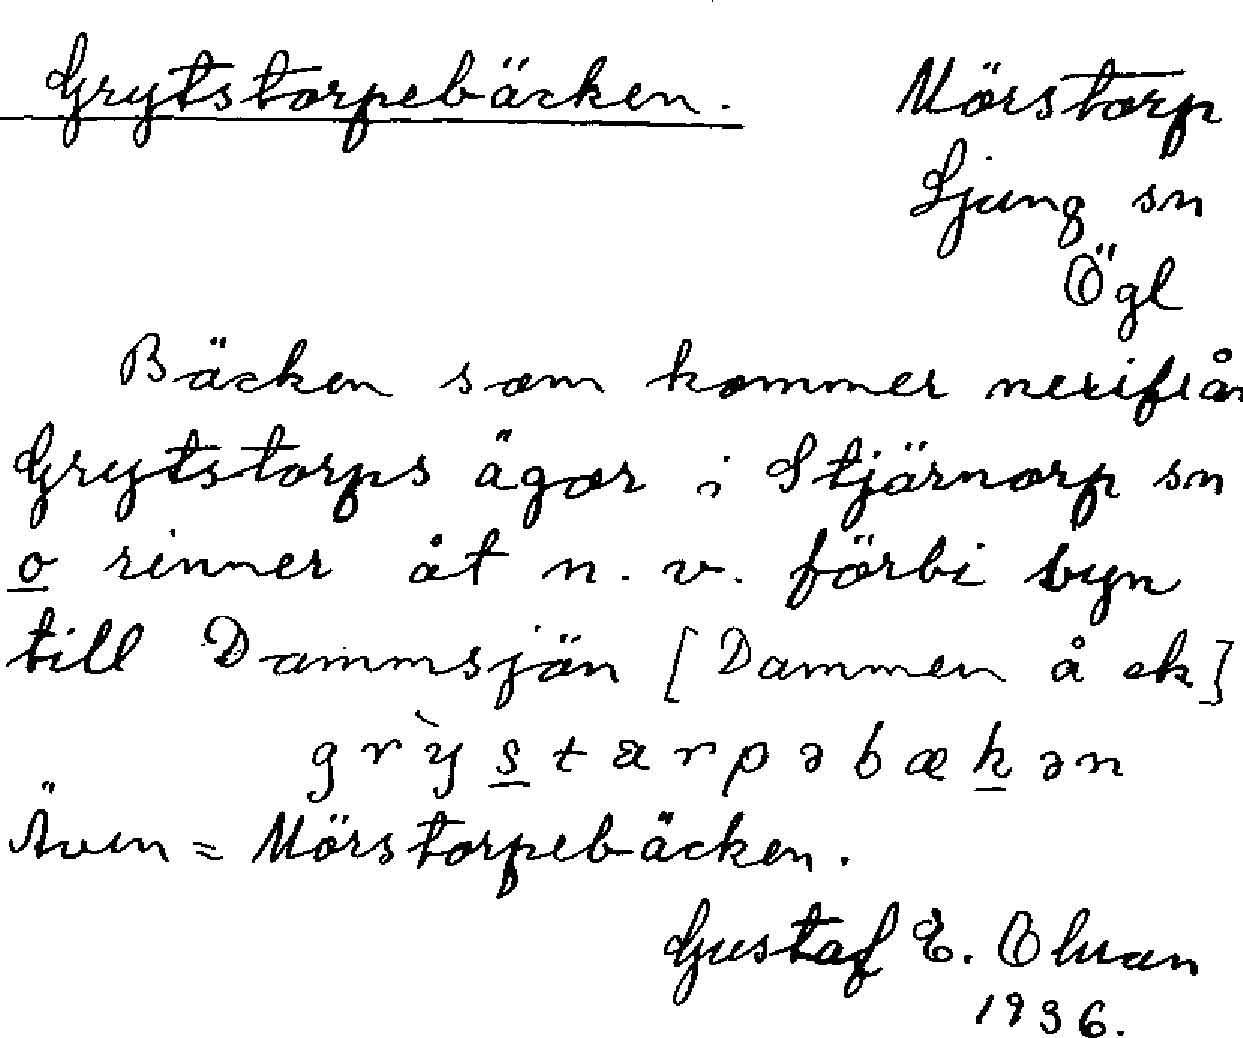 Grytstorpebäcken. Mörstorp
Ljung sn
Ögl
Bäcken som kommer nerifrån
Grytstorps ägor i Stjärnorp sn
o rinner åt n. v. förbi byn
till Dammsjön [Dammen å ek]
grỳstarpəbækən
Även = Mörstorpebäcken.
Gustaf E.
1936.